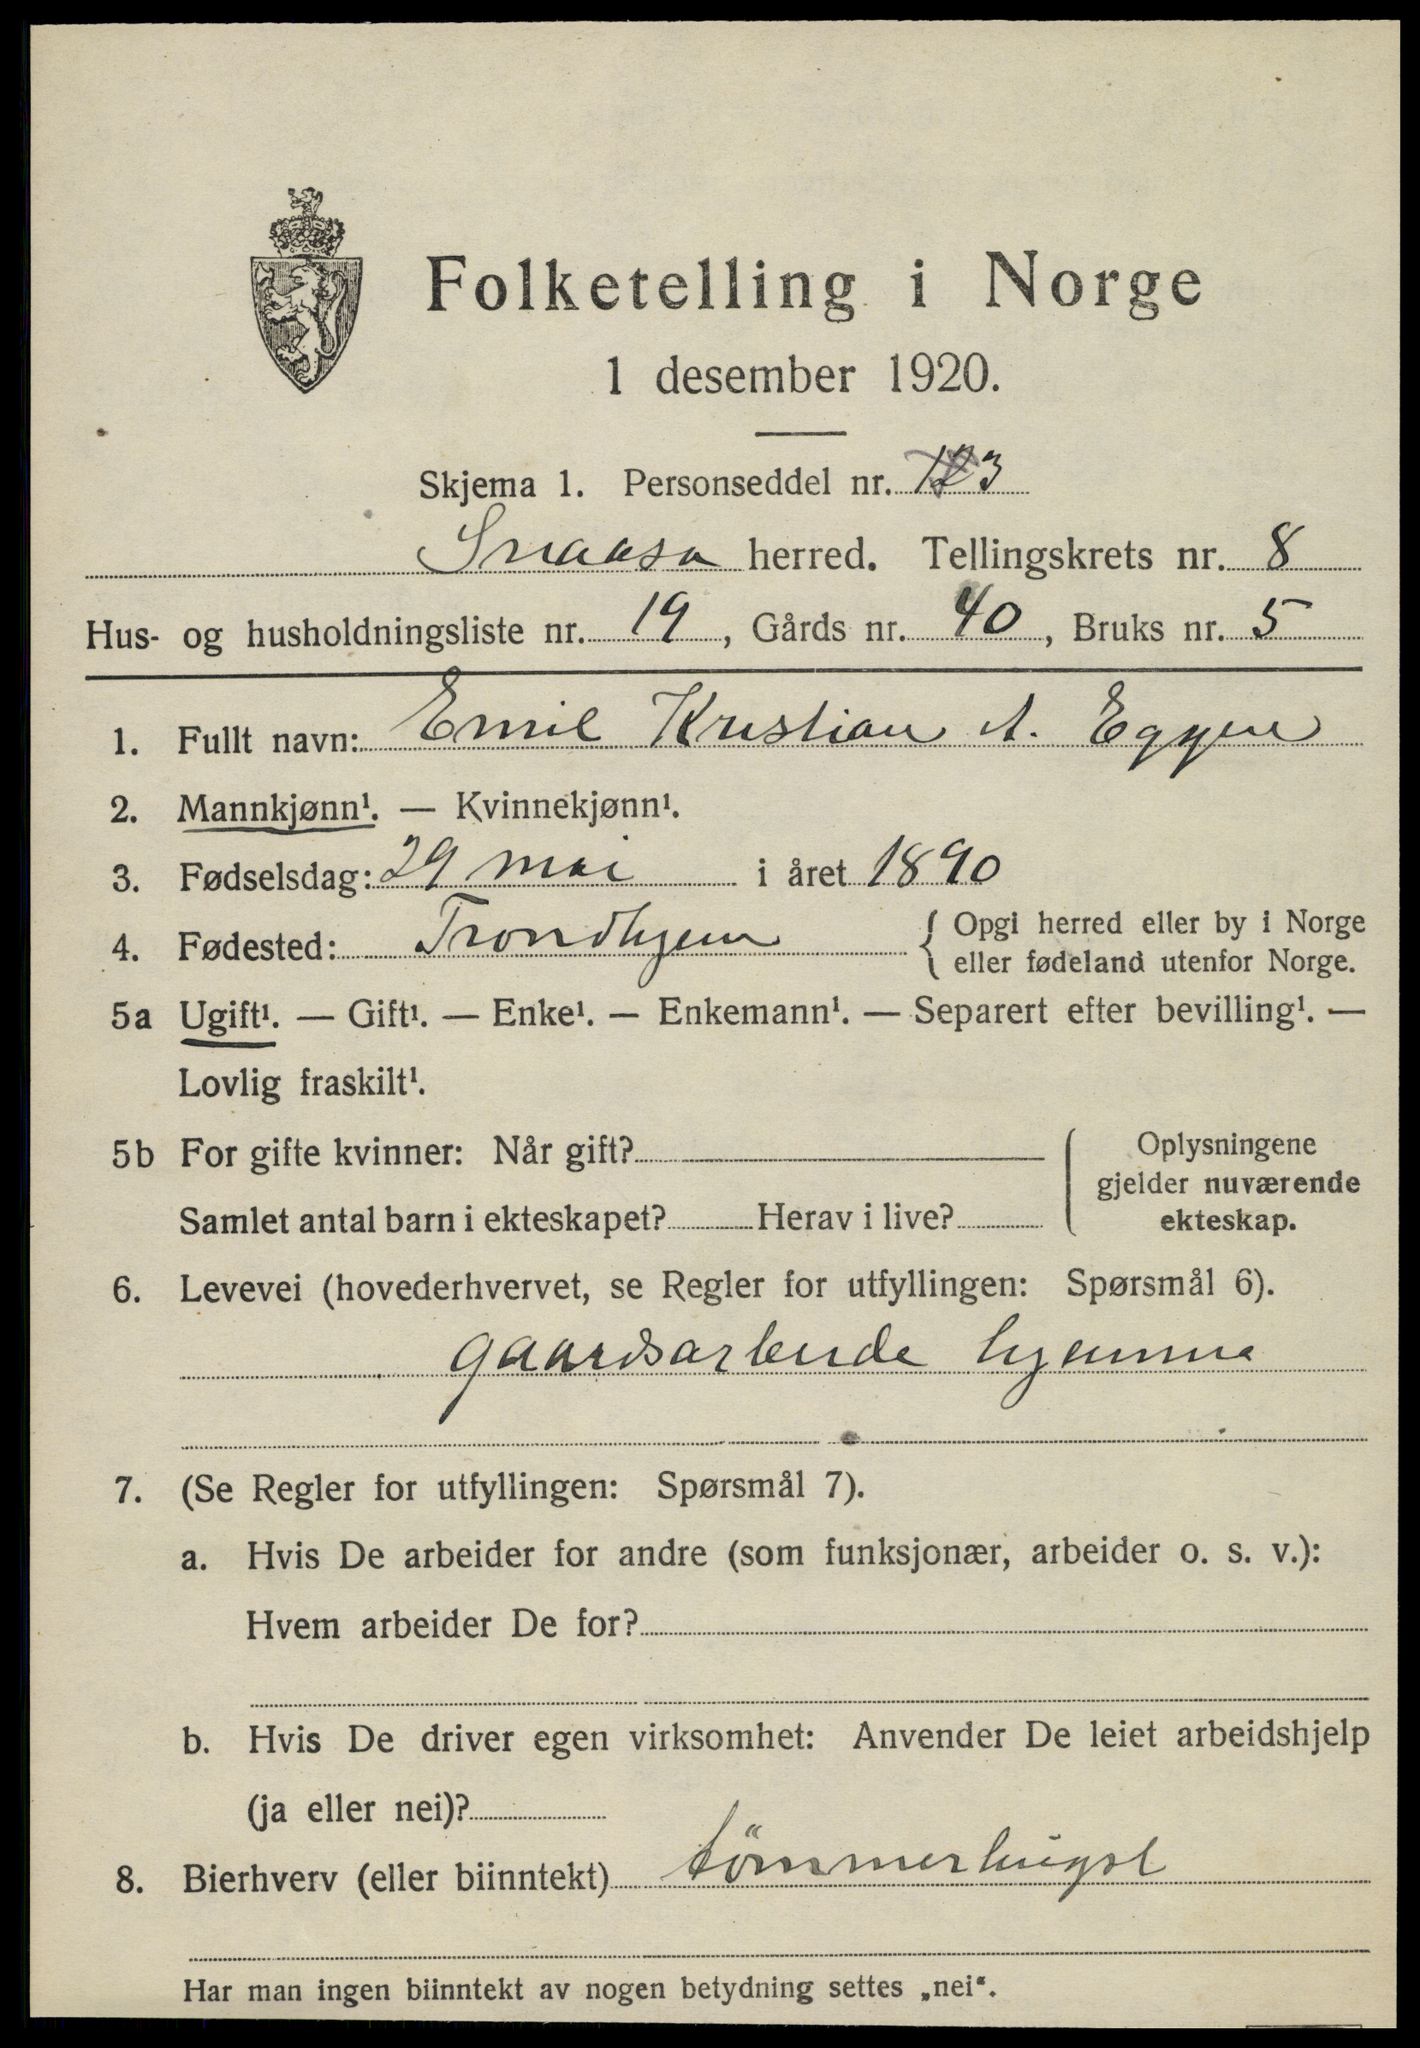 Folketelling i Norge
1 desember 1920.
Skjema 1. Personseddel nr. 123
Snaasa herred. Tellingskrets nr. 8
Hus- og husholdningsliste nr. 19, Gårds nr. 40, Bruks nr. 5
1. Fullt navn: Emil Kristian A. Eggen
2. Mannkjønn¹. — Kvinnekjønn¹.
3. Fødselsdag: 29 mai i året 1890
4. Fødested: Trondhjem { Opgi herred eller by i Norge
eller fødeland utenfor Norge.
5a Ugift¹. — Gift¹. — Enke¹. — Enkemann¹. — Separert efter bevilling¹. —
Lovlig fraskilt¹.
5b For gifte kvinner: Når gift?
Samlet antal barn i ekteskapet? Herav i live?
Oplysningene
gjelder nuværende
ekteskap.
6. Levevei (hovederhvervet, se Regler for utfyllingen: Spørsmål 6).
gaardsarbeide hjemme
7. (Se Regler for utfyllingen: Spørsmål 7).
a. Hvis De arbeider for andre (som funksjonær, arbeider o. s. v.):
Hvem arbeider De for?
b. Hvis De driver egen virksomhet: Anvender De leiet arbeidshjelp
(ja eller nei)?
8. Bierhverv (eller biinntekt) tömmerhugst
Har man ingen biinntekt av nogen betydning settes „nei“.